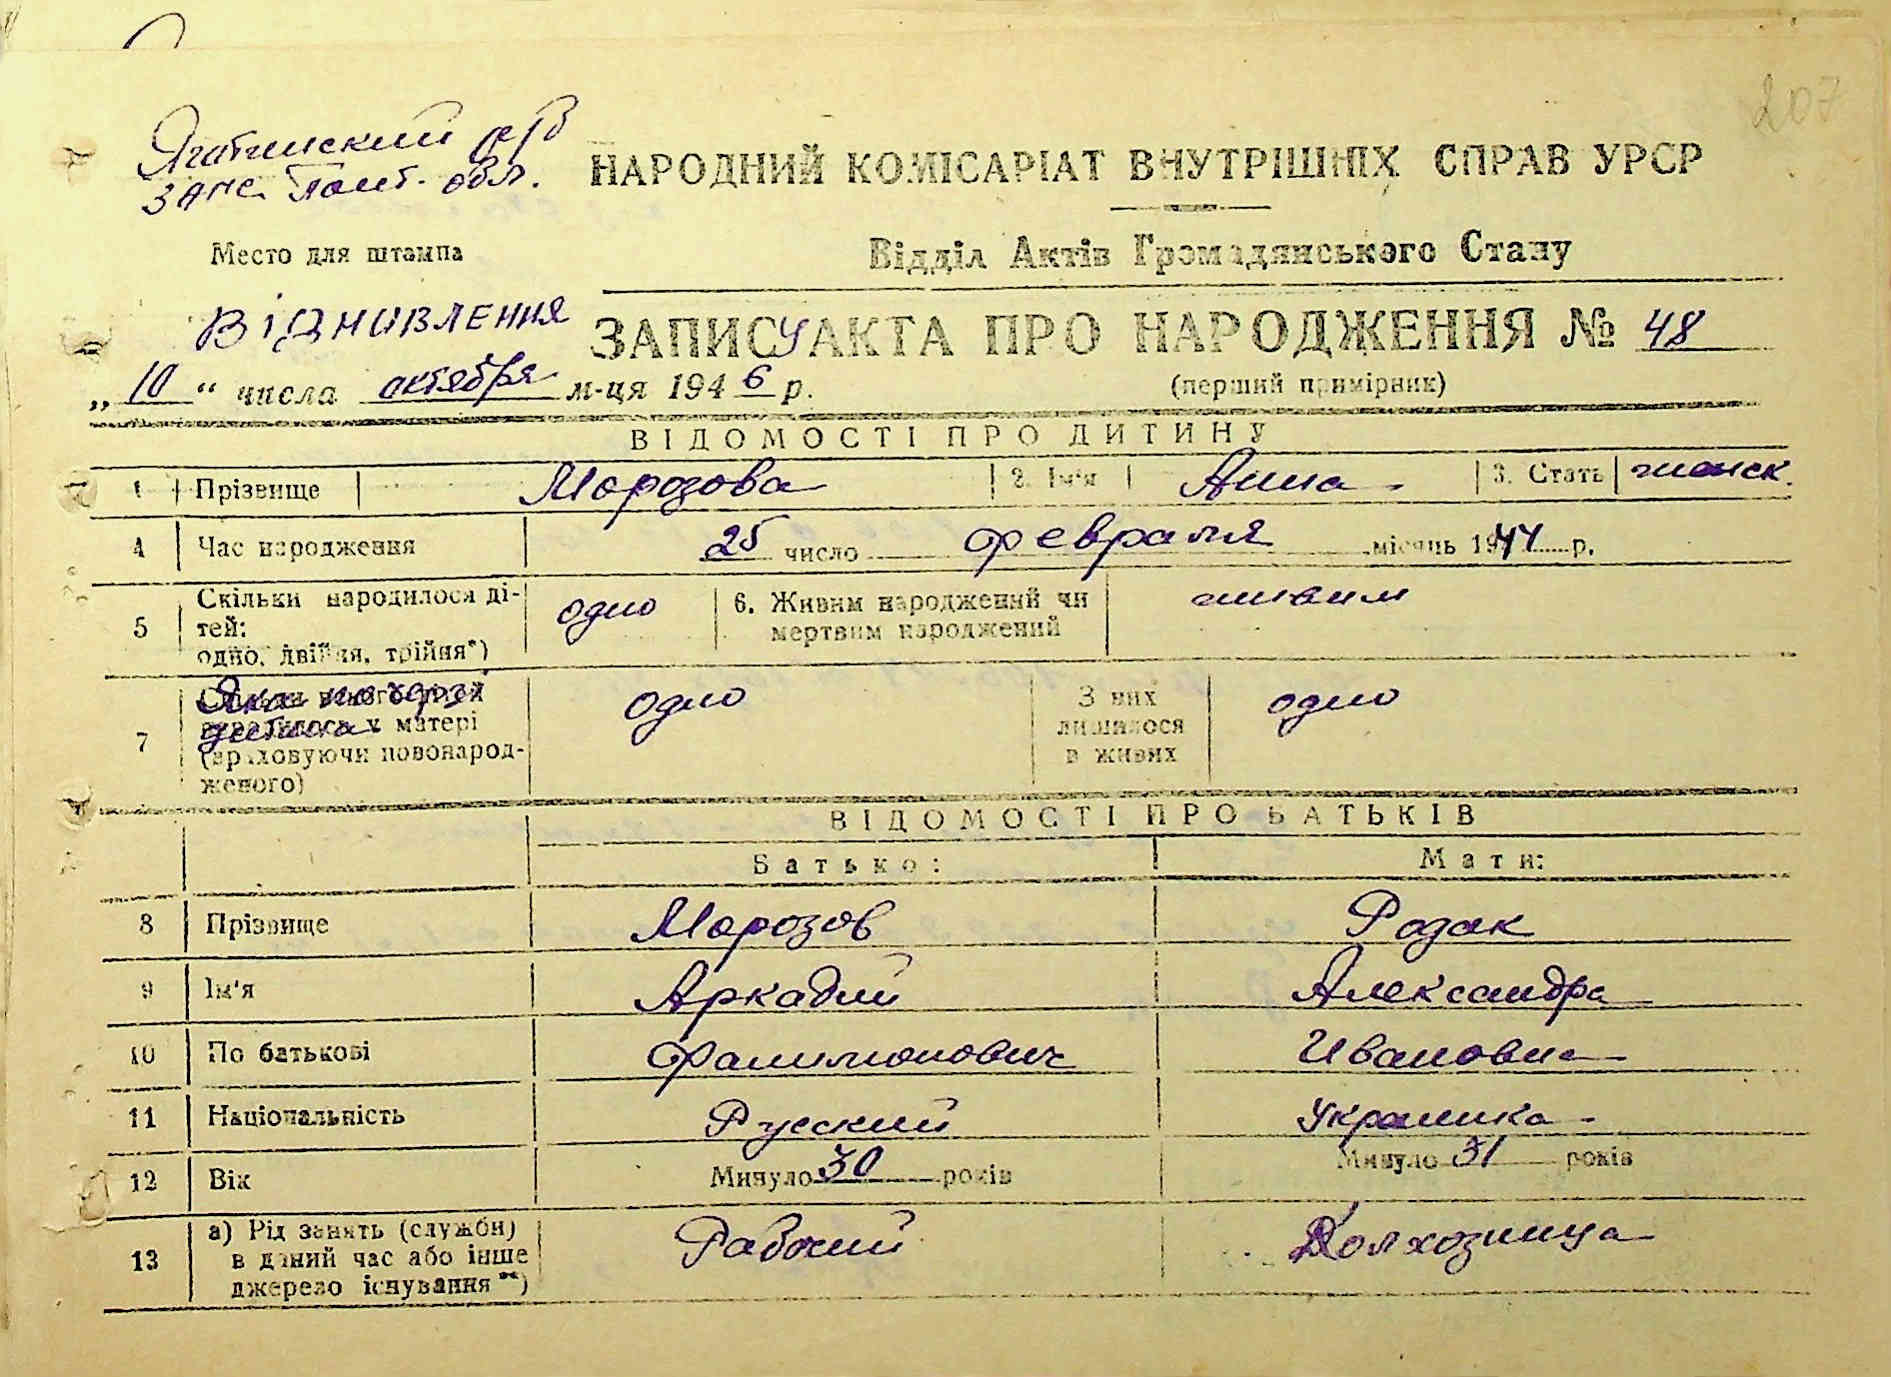 207
Яготинский р/в
ЗАГС Полт. обл.
НАРОДНИЙ КОМІСАРІАТ ВНУТРІШНІХ СПРАВ УРСР
Место для штампа
Відділ Актів Громадянського Стану
Відновлення
ЗАПИСУ АКТА ПРО НАРОДЖЕННЯ № 48
„ 10 “ числа октября м-ця 1946 р.
(перший примірник)
ВІДОМОСТІ ПРО ДИТИНУ
1 Прізвище Морозова 2. Ім'я Анна 3. Стать женск.
4 Час народження 25 число февраля місяць 1944 р.
5 Скільки народилося ді-
тей:
одно, двійня, трійня*) одно 6. Живим народжений чи
мертвим народжений живим
7 Яка по черзі
дитина у матері
(враховуючи новонарод-
женого) одно З них
лишилося
в живих одно
ВІДОМОСТІ ПРО БАТЬКІВ
Батько: Мати:
8 Прізвище Морозов Розак
9 Ім'я Аркадий Александра
10 По батькові Фалимонович Ивановна
11 Національність Русский Украинка
12 Вік Минуло 30 років Минуло 31 років
13 а) Рід занять (служби)
в даний час або інше
джерело існування**) Рабочий Колхозница